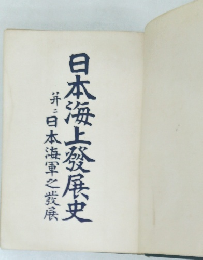 日本海上發展史
并ニ日本海軍之發展